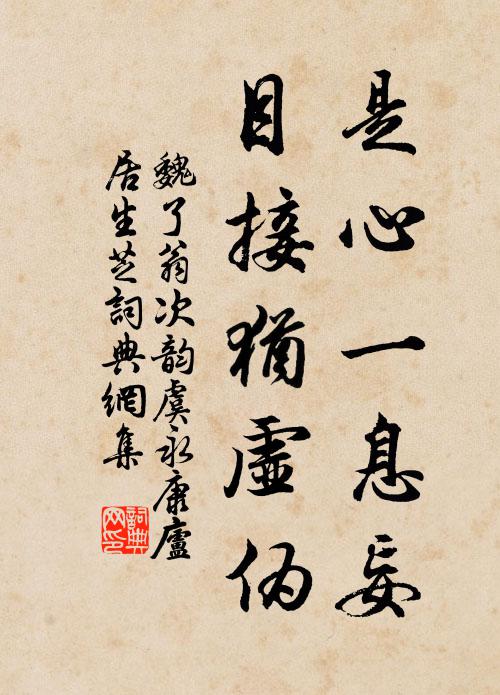 是心一息妄
目接犹虛伪
魏了翁次韵虞永康廬
居生芝詞典網集
詞典
网印